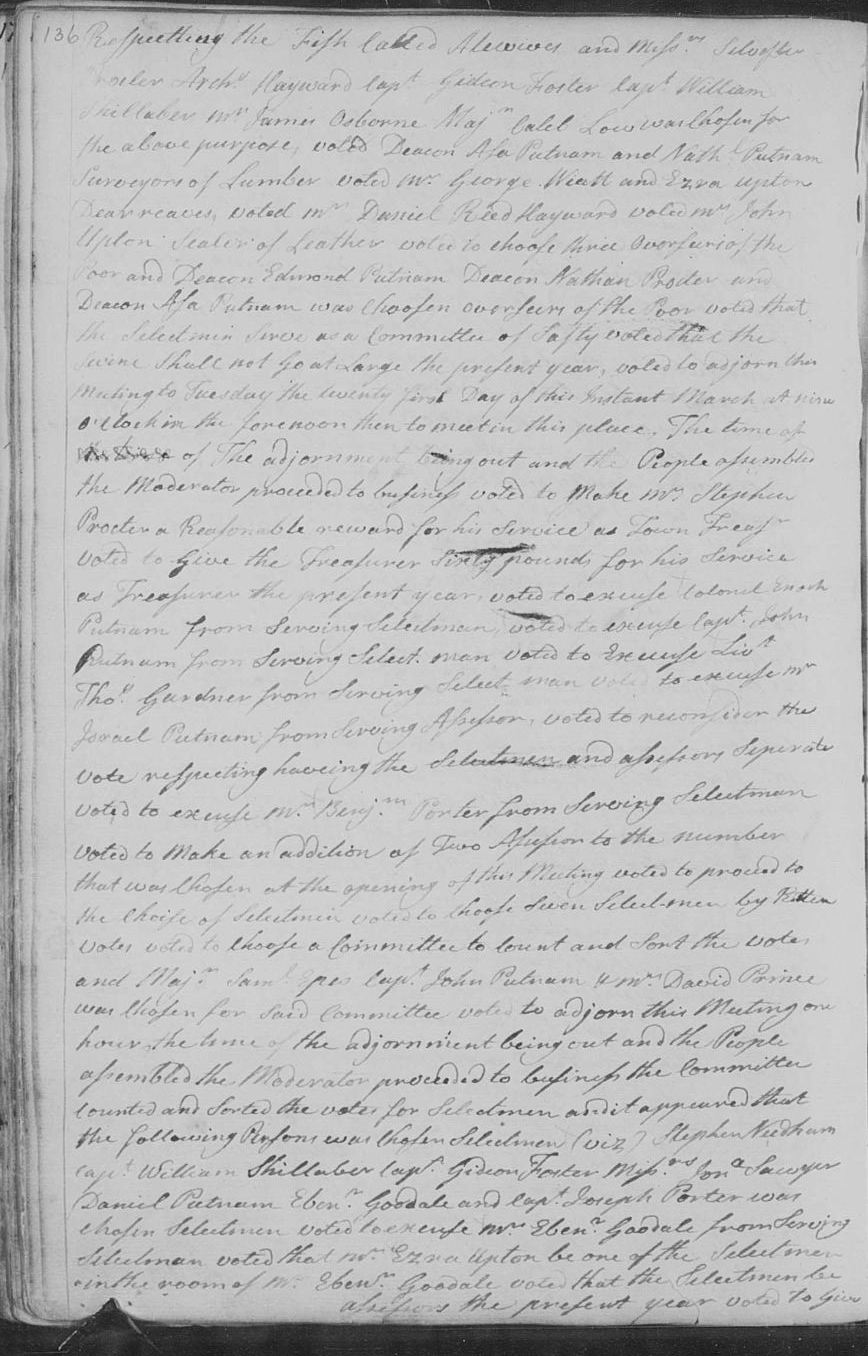 136 Respecting the Fish called Alewives and Messrs Silvester
Procter Archs Hayward Capt Gideon Foster Capt William
Shillaber mr James Osborne Majr Calel Low was Chosen for
the above purpose, voted Deacon Asa Putnam and Nathl Putnam
Surveyors of Lumber voted mr George Wiatt and Ezra Upton
Dear reaves, voted mr Daniel Reed Hayward voted mr John
Upton Sealer of Leather voted to choose three Overseers of the
Poor and Deacon Edmond Putnam Deacon Nathan Procter and
Deacon Asa Putnam was Choosen overseers of the Poor voted that
the Selectmin Serve as a Committee of Safty voted that the
Swine Shall not Go at Large the present year, voted to adjorn this
Meeting to Tuesday the twenty first Day of this Instant March at nine
o'clock in the forenoon then to meet in this place. The time of
of The adjornment being out and the People assembled
the Moderator proceeded to business voted to Make mr Stephen
Procter a Reasonable reward for his Service as Town Treasr
voted to Give the Treasurer Sixty pounds for his Service
as Treasurer the present year, voted to excuse Colonel Enoch
Putnam from Serving Selectman, voted to excuse Capt John
Putnam from Serving Select man voted to Excuse Livt
Thos Gardner from Serving Select man voted to excuse mr
Israel Putnam from Serving Assessor, voted to reconsider the
vote respecting haveing the Selectmen and assessors Seperate
voted to excuse mr Benjmn Porter from Serving Selectman
voted to Make an addition of Two Assessor to the number
that was Chosen at the opening of this Meeting voted to proceed to
the Choise of Selectmen voted to Choose Seven Select-men by Ritten
votes voted to Choose a Committee to Count and Sort the votes
and Majr Saml Epes Capt John Putnam & mr David Prince
was Chosen for Said Committee voted to adjorn this Meeting one
hour, the time of the adjornment being out and the People
assembled the Moderator proceeded to business the Committee
Counted and Sorted the votes for Selectmen and it appeared that
the following Persons was Chosen Selectmen (viz) Stephen Needham
Capt William Shillaber Capt Gideon Foster Missrs Jona Sawyer
Daniel Putnam Ebenr Goodale and Capt Joseph Porter was
Chosen Selectmen voted to excuse mr Ebenr Goodale from Serving
Selectman voted that mr Ezra Upton be one of the Selectmen
in the room of mr Ebenr Goodale voted that the Selectmen be
assessors the present year voted to Give